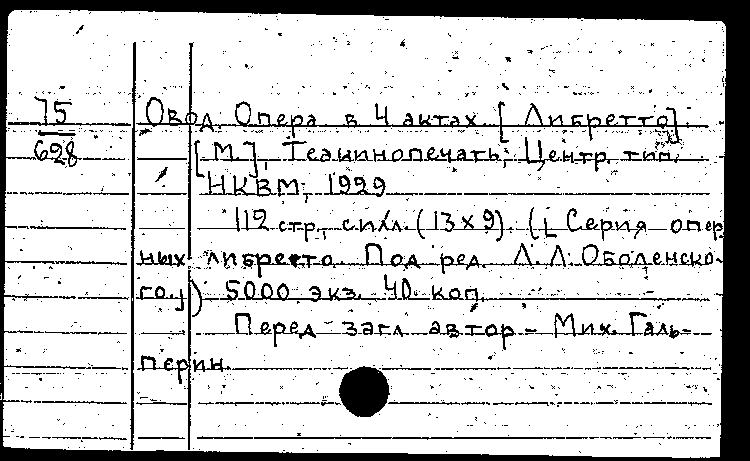 75
628
Овод. Опера в 4 актах. [Либретто].
[М.], Теакинопечать; Центр. тип.
НКВМ, 1929
112 стр., с илл. (13х9). ([Серия опер
ных либретто. Под ред. Л. Л. Оболенско-
го.]) 5000 экз. 40 коп.
Перед загл автор - Мих. Галь-
перин.